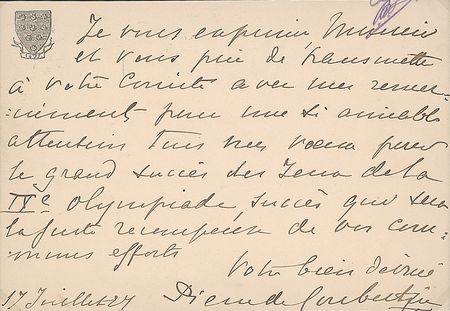 Je vous exprime, Monsieur
et vous prie de transmettre
à votre Comité avec mes remer-
ciements pour une si aimable
attention tous mes vœux pour
le grand succès des Jeux de la
IXe olympiade, succès que sera
la juste récompense de vos com-
muns efforts
Votre bien dévoué
17 Juillet 27 Pierre de Coubertin